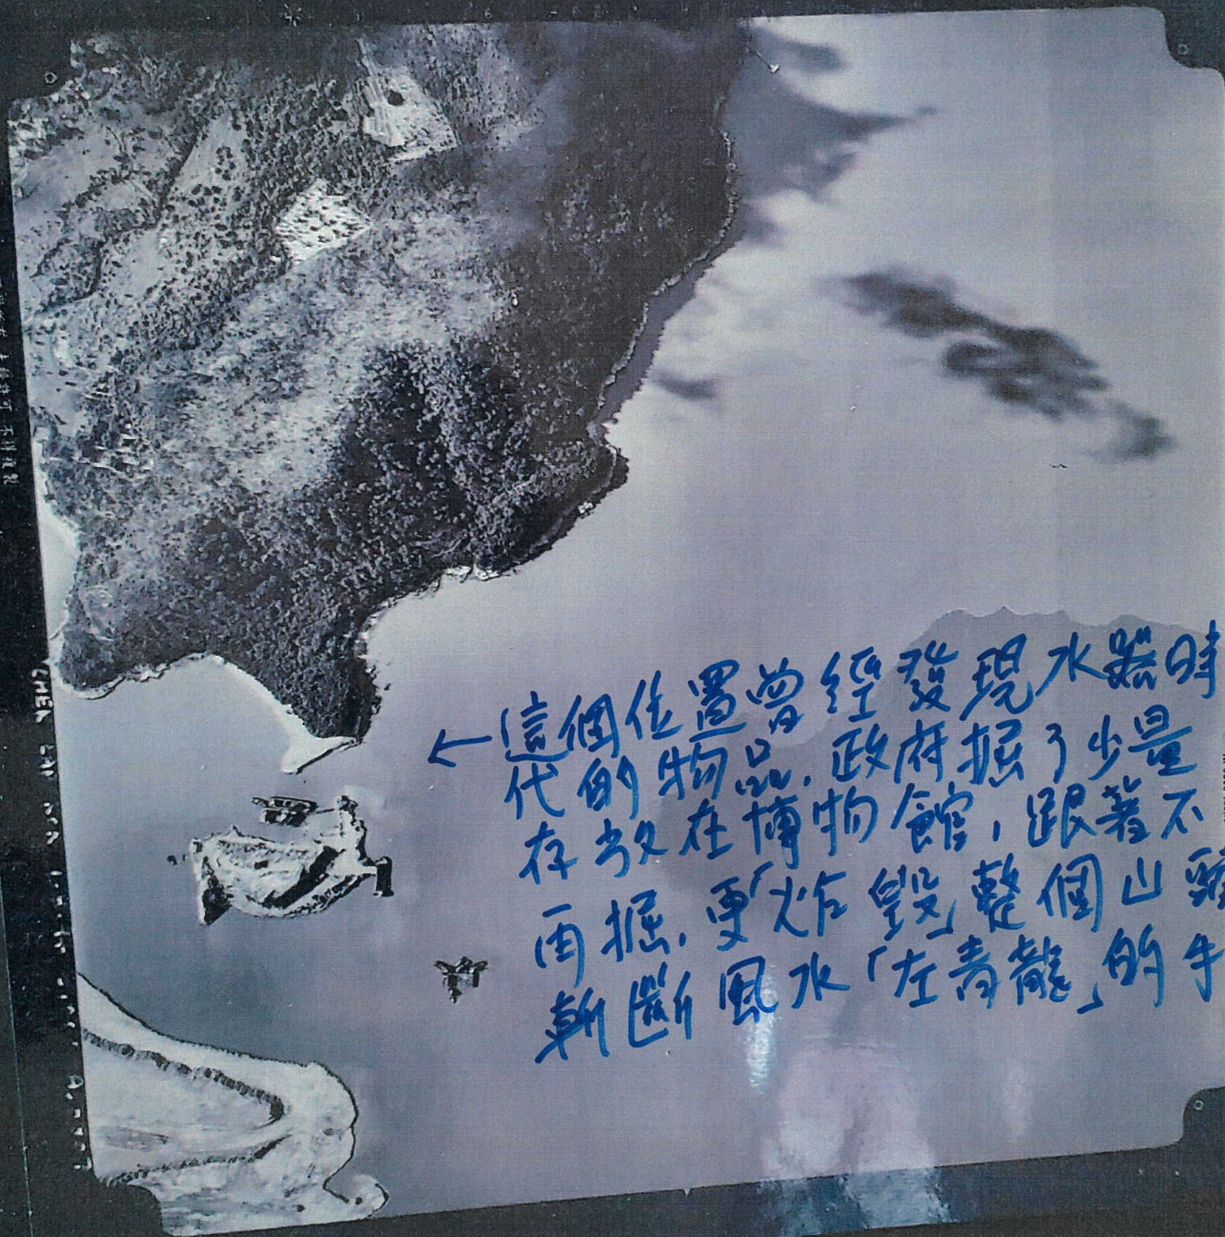 ←這個位置曾經發現水器時
代的物品，政府掘了少量
存放在博物館，跟著不
再掘，更「炸毀」整個山頭
斬斷風水「左青龍」的手